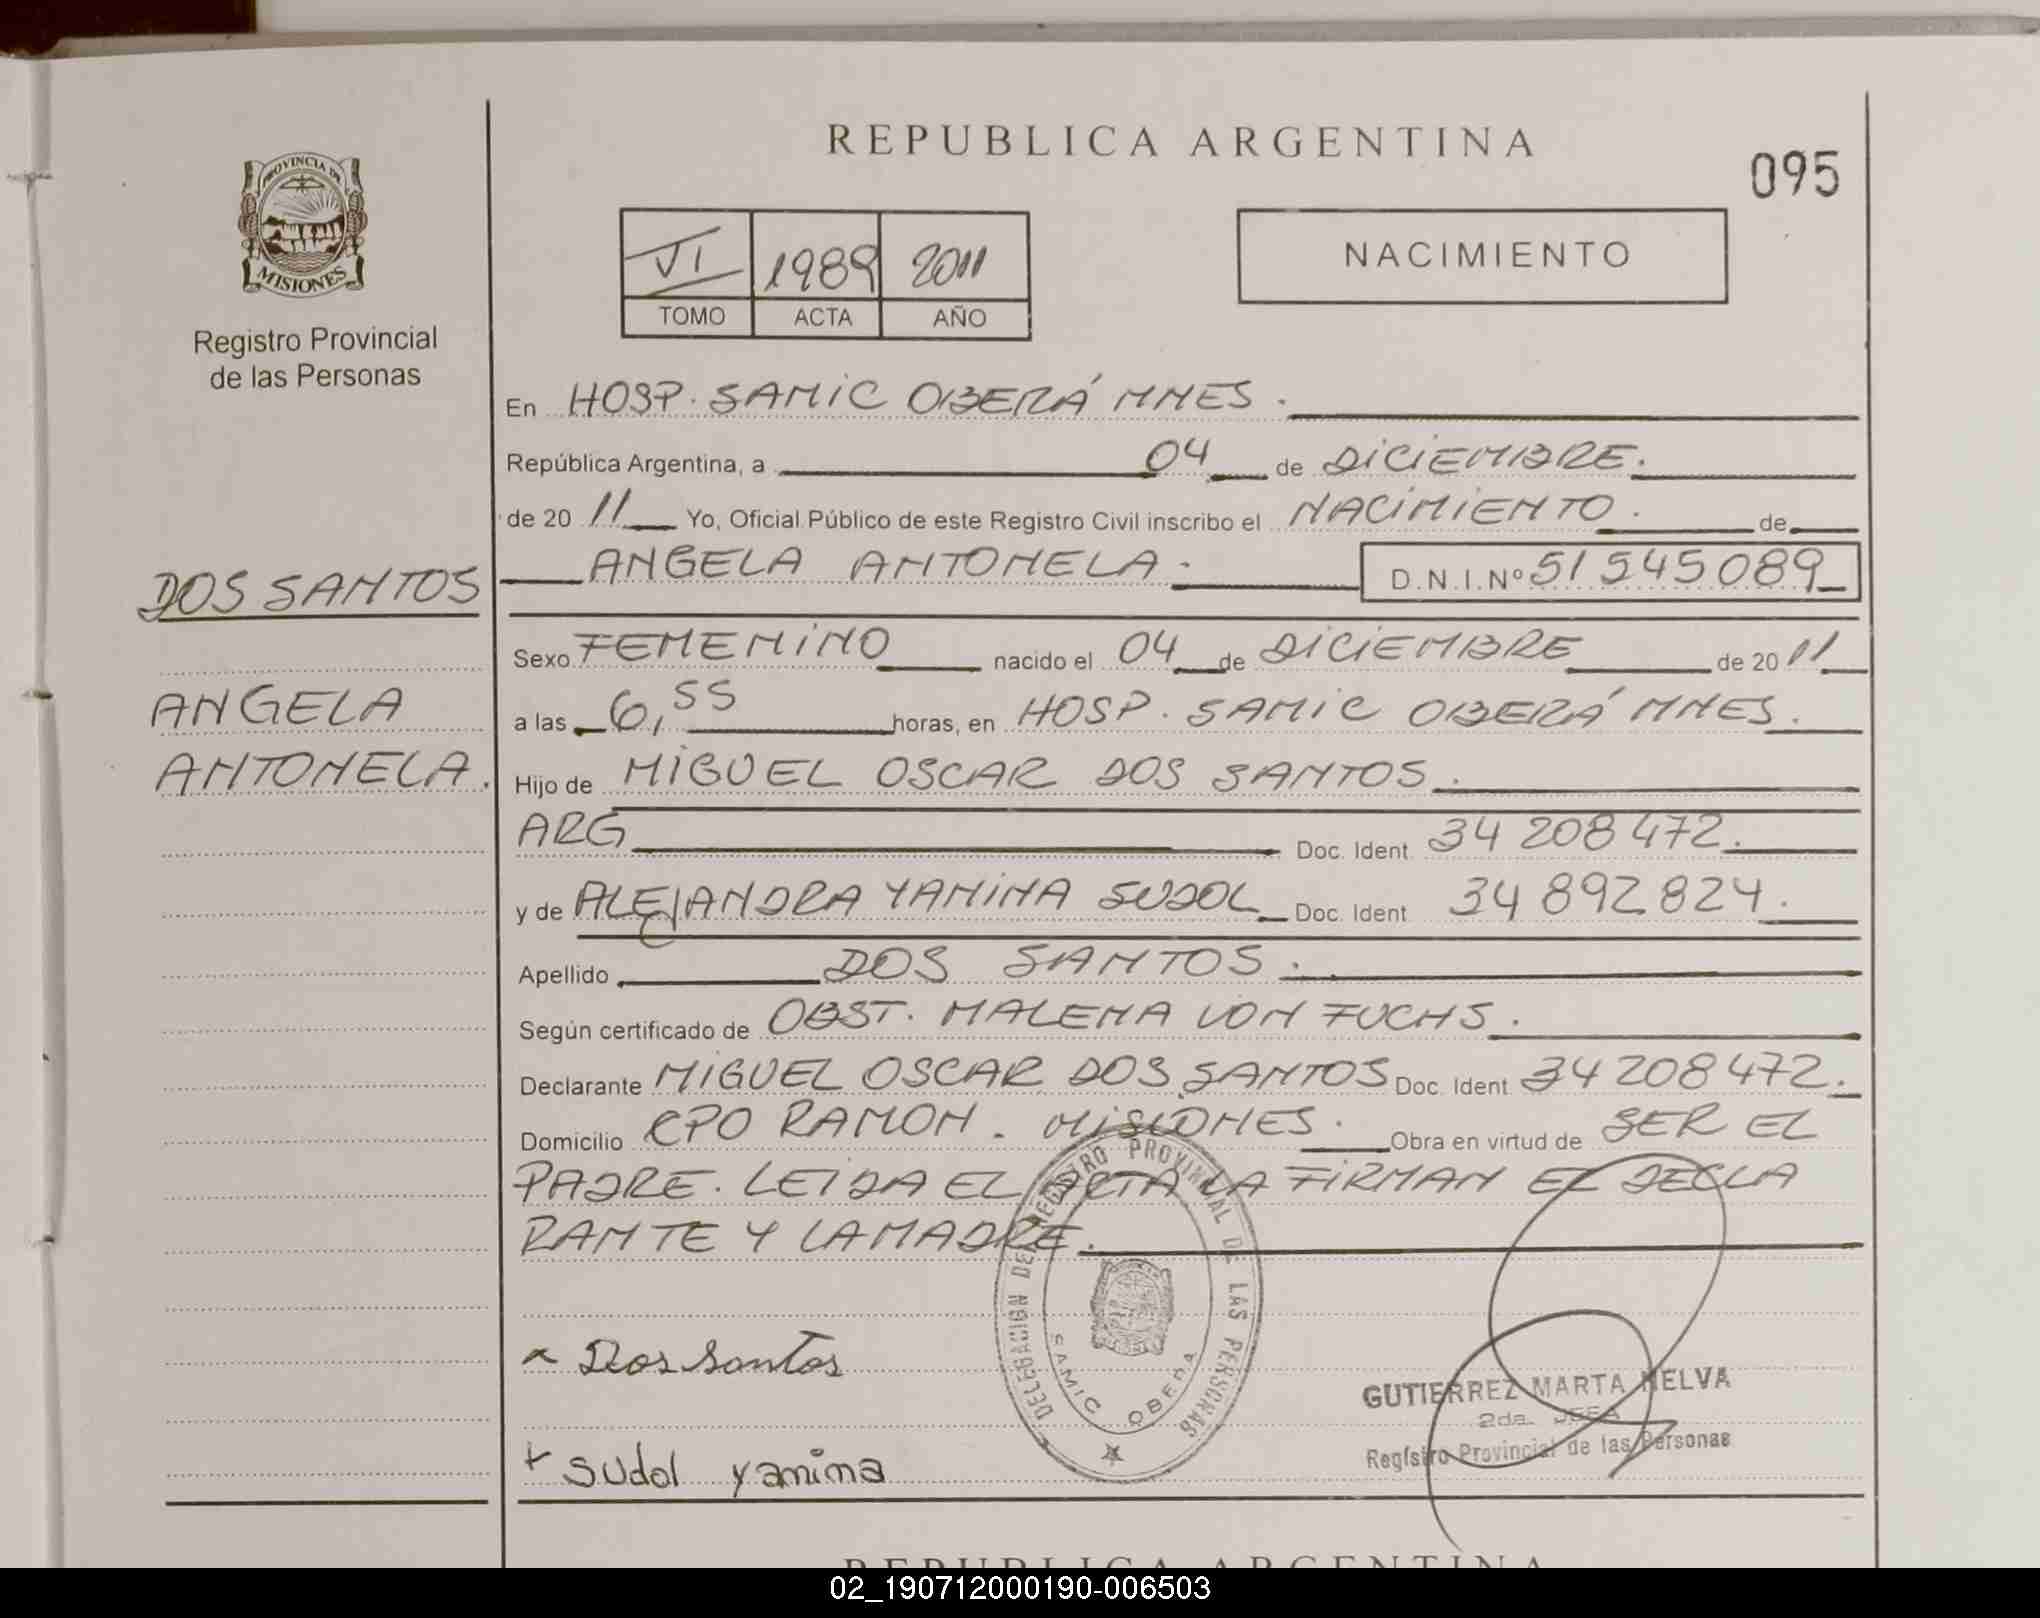 REPUBLICA ARGENTINA
095
PROVINCIA DE
MISIONES
Registro Provincial
de las Personas
VI 1989 2011
TOMO ACTA AÑO
NACIMIENTO
En HOSP. SAMIC OBERÁ MNES.
República Argentina, a 04 de DICIEMBRE.
de 20 11 Yo, Oficial Público de este Registro Civil inscribo el NACIMIENTO. de
ANGELA ANTONELA. D.N.I.Nº 51545089
DOS SANTOS
ANGELA
ANTONELA.
Sexo FEMENINO nacido el 04 de DICIEMBRE de 20 11
a las 6,55 horas, en HOSP. SAMIC OBERÁ MNES.
Hijo de MIGUEL OSCAR DOS SANTOS.
ARG Doc. Ident. 34 208 472.
y de ALEJANDRA YANINA SUDOL Doc. Ident 34 892 824.
Apellido DOS SANTOS.
Según certificado de OBST. MALENA VON FUCHS.
Declarante MIGUEL OSCAR DOS SANTOS Doc. Ident 34 208 472.
Domicilio CPO RAMON. MISIONES. Obra en virtud de SER EL
PADRE. LEIDA EL ACTA LA FIRMAN EL DECLA
RANTE Y LA MADRE.
DELEGACION DEL REGISTRO PROVINCIAL DE LAS PERSONAS
SAMIC OBERA
x Dos Santos
GUTIERREZ MARTA NELVA
2da. JEFA
Registro Provincial de las Personas
+ Sudol yanina
REPUBLICA ARGENTINA
02_190712000190-006503